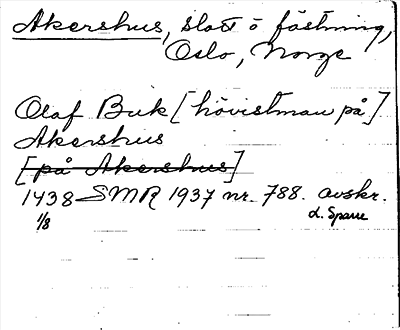 Akershus, slott o fästning,
Oslo, Norge
Olaf Buk [hövistman på]
Akershus
[på Akershus]
1438 SMR 1937 nr. 788. avskr.
1/8 d. Sparre